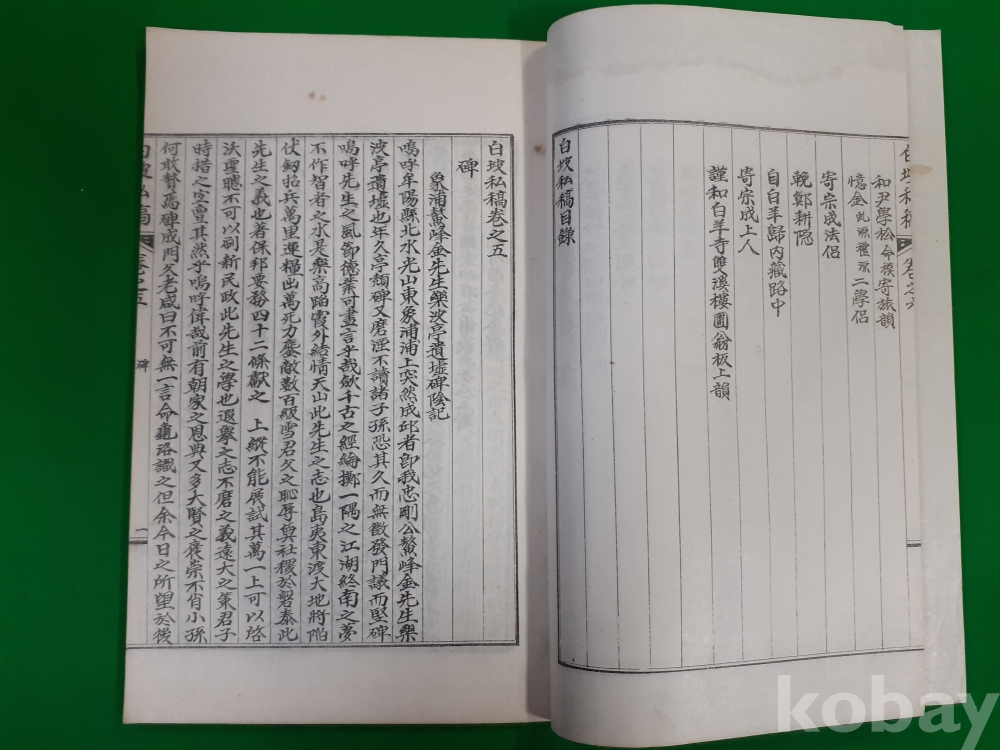 和尹學松命模寄旅韻
憶金虬源種源二學侶
寄宗成法侶
輓鄭耕隱
自白羊歸內藏路中
寄宗成上人
謹和白羊寺雙溪樓圃翁板上韻
白坡私稿目錄
白坡私稿卷之五
碑
象浦鰲峰金先生樂波亭遺墟碑陰記
嗚呼牟陽縣北水光山東象浦浦上突然成邱者卽我忠剛公鰲峰金先生樂
波亭遺墟也年久亭頹碑又磨湮不讀諸子孫恐其久而無徵發門議而竪碑
嗚呼先生之風節德業可盡言乎哉斂千古之經綸擲一隅之江湖終南之夢
不作智者之水是樂高蹈霞外結情天山此先生之志也島夷東渡大地將陷
仗劒招兵萬里運糧出萬死力鏖敵數百級雪君父之恥辱奠社稷於磐泰此
先生之義也著保邦要務四十二條獻之 上縱不能展試其萬一上可以啓
沃聖聰不可以刷新民政此先生之學也遐擧之志不磨之義遠大之策君子
時措之宜亶其然乎嗚呼偉哉前有朝家之恩典又多大賢之褒崇不肖小孫
何敢贅焉碑成門父老咸曰不可無一言命龜洛識之但余今日之所望於後
白坡私稿
卷之五
碑
一
kobay